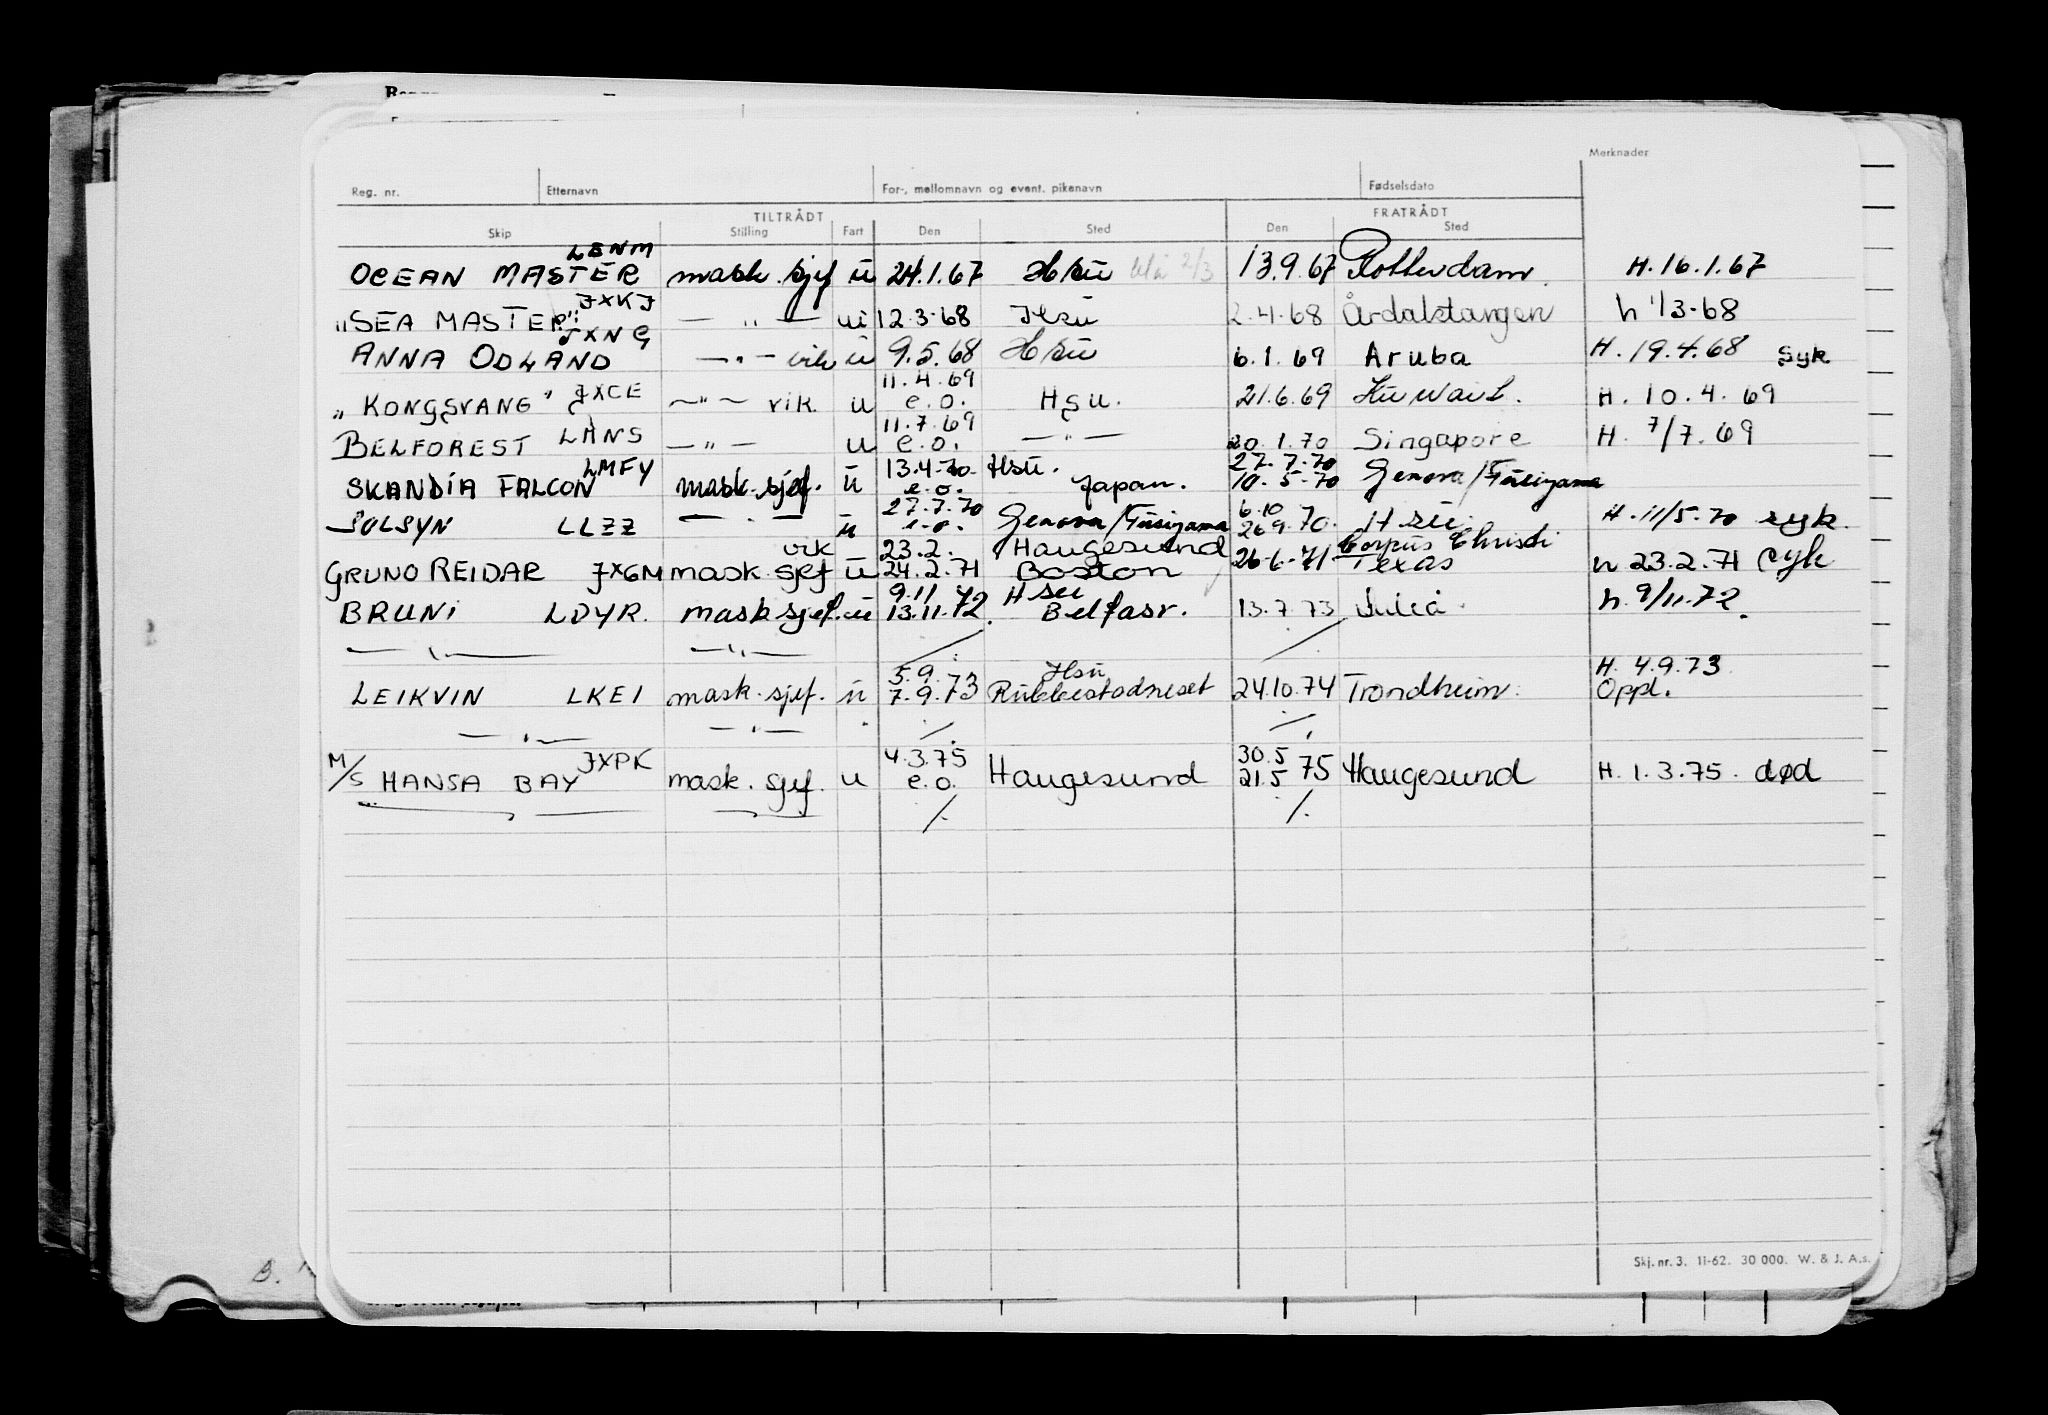 Merknader
Reg. nr. Etternavn For-, mellomnavn og event. pikenavn Fødselsdato
TILTRÅDT FRATRÅDT
Skip Stilling Fart Den Sted Den Sted
LENM
OCEAN MASTER mask. sjef u 24.1.67 Hsu 2/3 13.9.67 Rotterdam. H. 16.1.67
JXKJ
"SEA MASTER" — " — u 12.3.68 Hsu 2.4.68 Årdalstangen h 1/3-68
JXNG
ANNA ODLAND — " — vik u 9.5.68 Hsu 6.1.69 Aruba H. 19.4.68 syk
11.4.69
"KONGSVANG" JXCE — " — vik. u e.o. Hsu. 21.6.69 Kuwait. H. 10.4.69
11.7.69
BELFOREST LHNS — " — u e.o. — " — 20.1.70 Singapore H. 7/7.69
LMFY 13.4.70 Hsu. 27.7.70
SKANDIA FALCON mask. sjef. u e.o. Japan. 10.5.70 Genova/Fusiyama
27.7.70 6.10
SOLSYN LLZZ — " — u e.o. Genova/Fusiyama 26.9.70. Hsu. H. 11/5.70 syk.
vik 23.2. Haugesund Corpus Christi
GRUNO REIDAR JXGM mask. sjef u 24.2.71 Boston 26.6.71 Texas h 23.2.71 syk
9.11 Hsu
BRUNI LDYR. mask sjef. u 13.11.72. Belfast. 13.7.73 Luleå. h. 9/11.72.
— " — — " — ⁄. ⁄.
5.9. Hsu H. 4.9.73
LEIKVIN LKEI mask. sjef. u 7.9.73 Rubbestadneset 24.10.74 Trondheim. Oppl.
— " — — " — ⁄. ⁄.
JXPK 4.3.75 30.5
M/S HANSA BAY mask. sjef. u e.o. Haugesund 21.5 75 Haugesund H. 1.3.75. død
⁄. ⁄.
Skj. nr. 3. 11-62. 30 000. W. & J. A.s.